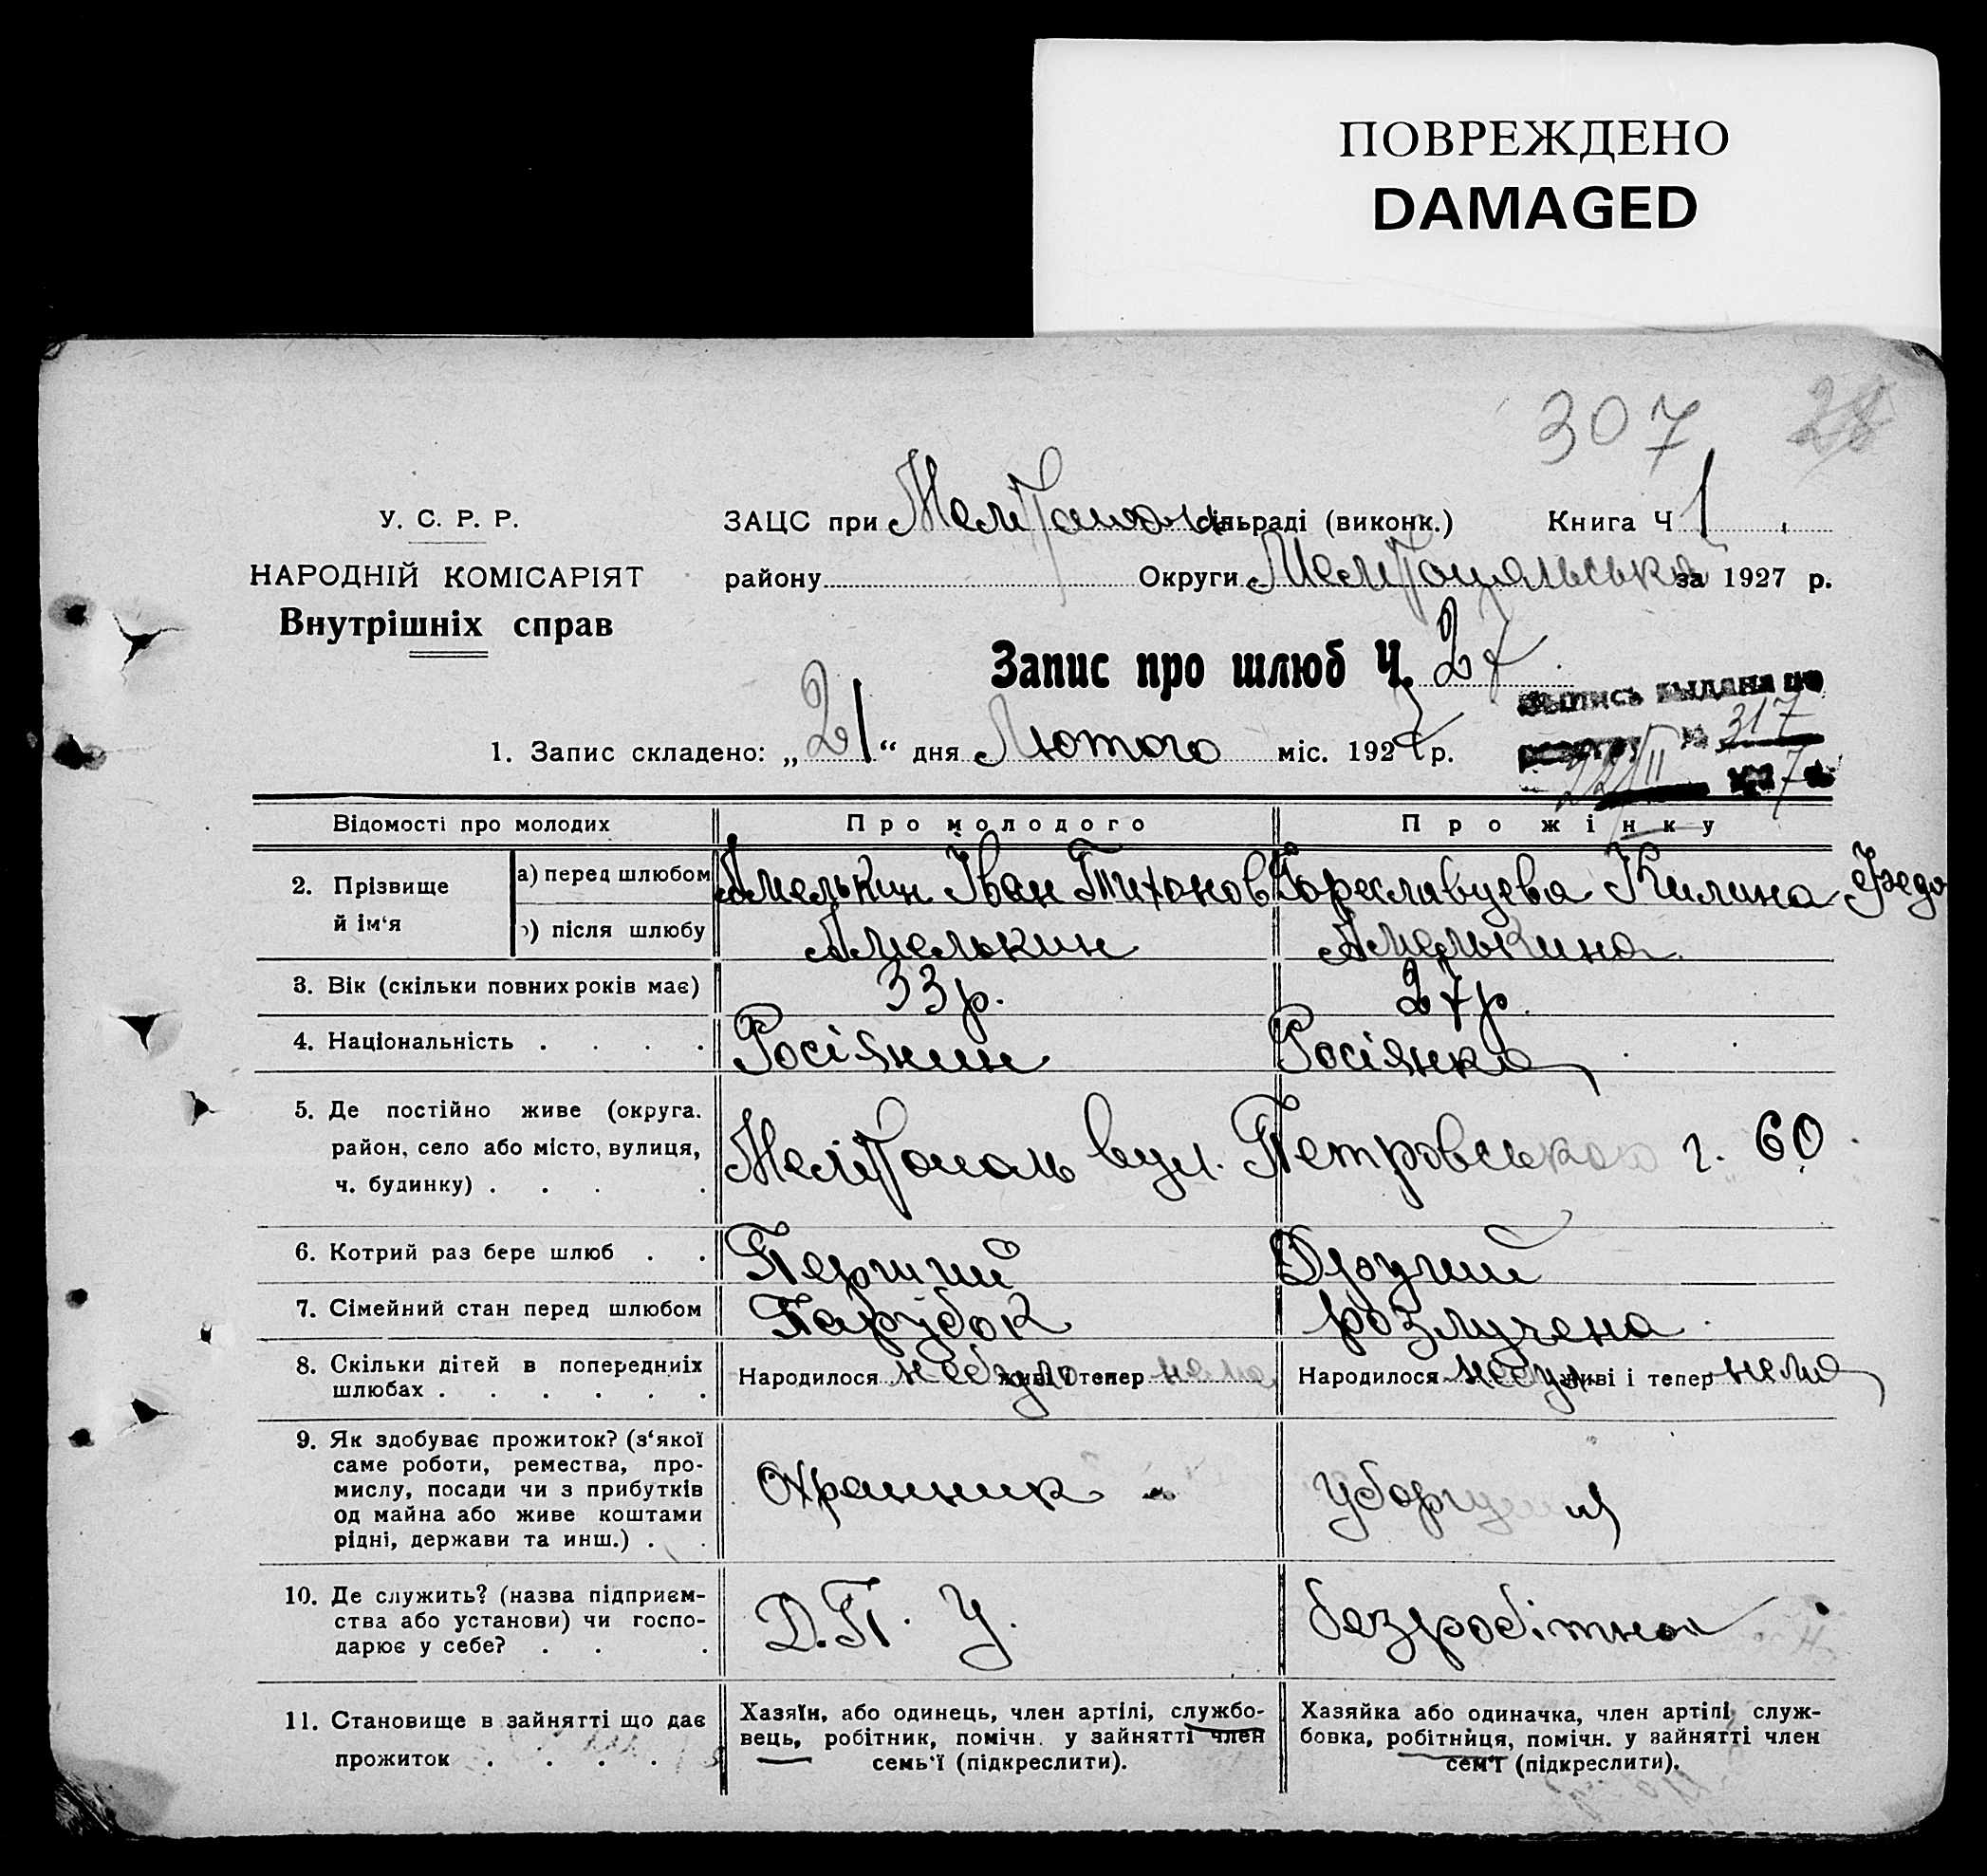 ПОВРЕЖДЕНО
DAMAGED
307 28
У. С. Р. Р.
НАРОДНІЙ КОМІСАРІЯТ
Внутрішніх справ
ЗАЦС при Меліτополь сільраді (виконк.) Книга Ч 1
району Округи Мелітопольська за 1927 р.
Запис про шлюб Ч. 27
Выпись выдана по
№ 317
22/II 1927 г.
1. Запис складено: „21“ дня Лютого міс. 1927 р.
Відомості про молодих Про молодого Про жінку
2. Прізвище й ім‘я
а) перед шлюбом Амелькин Іван Тихонов Гореславцева Килина Федо
б) після шлюбу Амелькин Амелькина
3. Вік (скільки повних років має) 33 р. 27 р.
4. Національність . . . . Росіянин Росіянка
5. Де постійно живе (округа.
район, село або місто, вулиця,
ч. будинку) . . . . Мелітополь вул. Петровського г. 60
6. Котрий раз бере шлюб . . Перший Другий
7. Сімейний стан перед шлюбом Парубок розлучена
8. Скільки дітей в попередніх
шлюбах . . . . . . Народилося небуло живі і тепер нема Народилося небул живі і тепер нема
9. Як здобуває прожиток? (з‘якої
саме роботи, ремества, про-
мислу, посади чи з прибутків
од майна або живе коштами
рідні, держави та инш.) . . Охранник Уборщиця
10. Де служить? (назва підприєм-
ства або установи) чи госпо-
дарює у себе? . . . Д.П.У. безробітна
11. Становище в зайнятті що дає
прожиток . . . .
Хазяїн, або одинець, член артілі, службо-
вець, робітник, помічн. у зайнятті член
семь‘ї (підкреслити).
Хазяйка або одиначка, член артілі служ-
бовка, робітниця, помічн. у зайнятті член
сем‘ї (підкреслити).